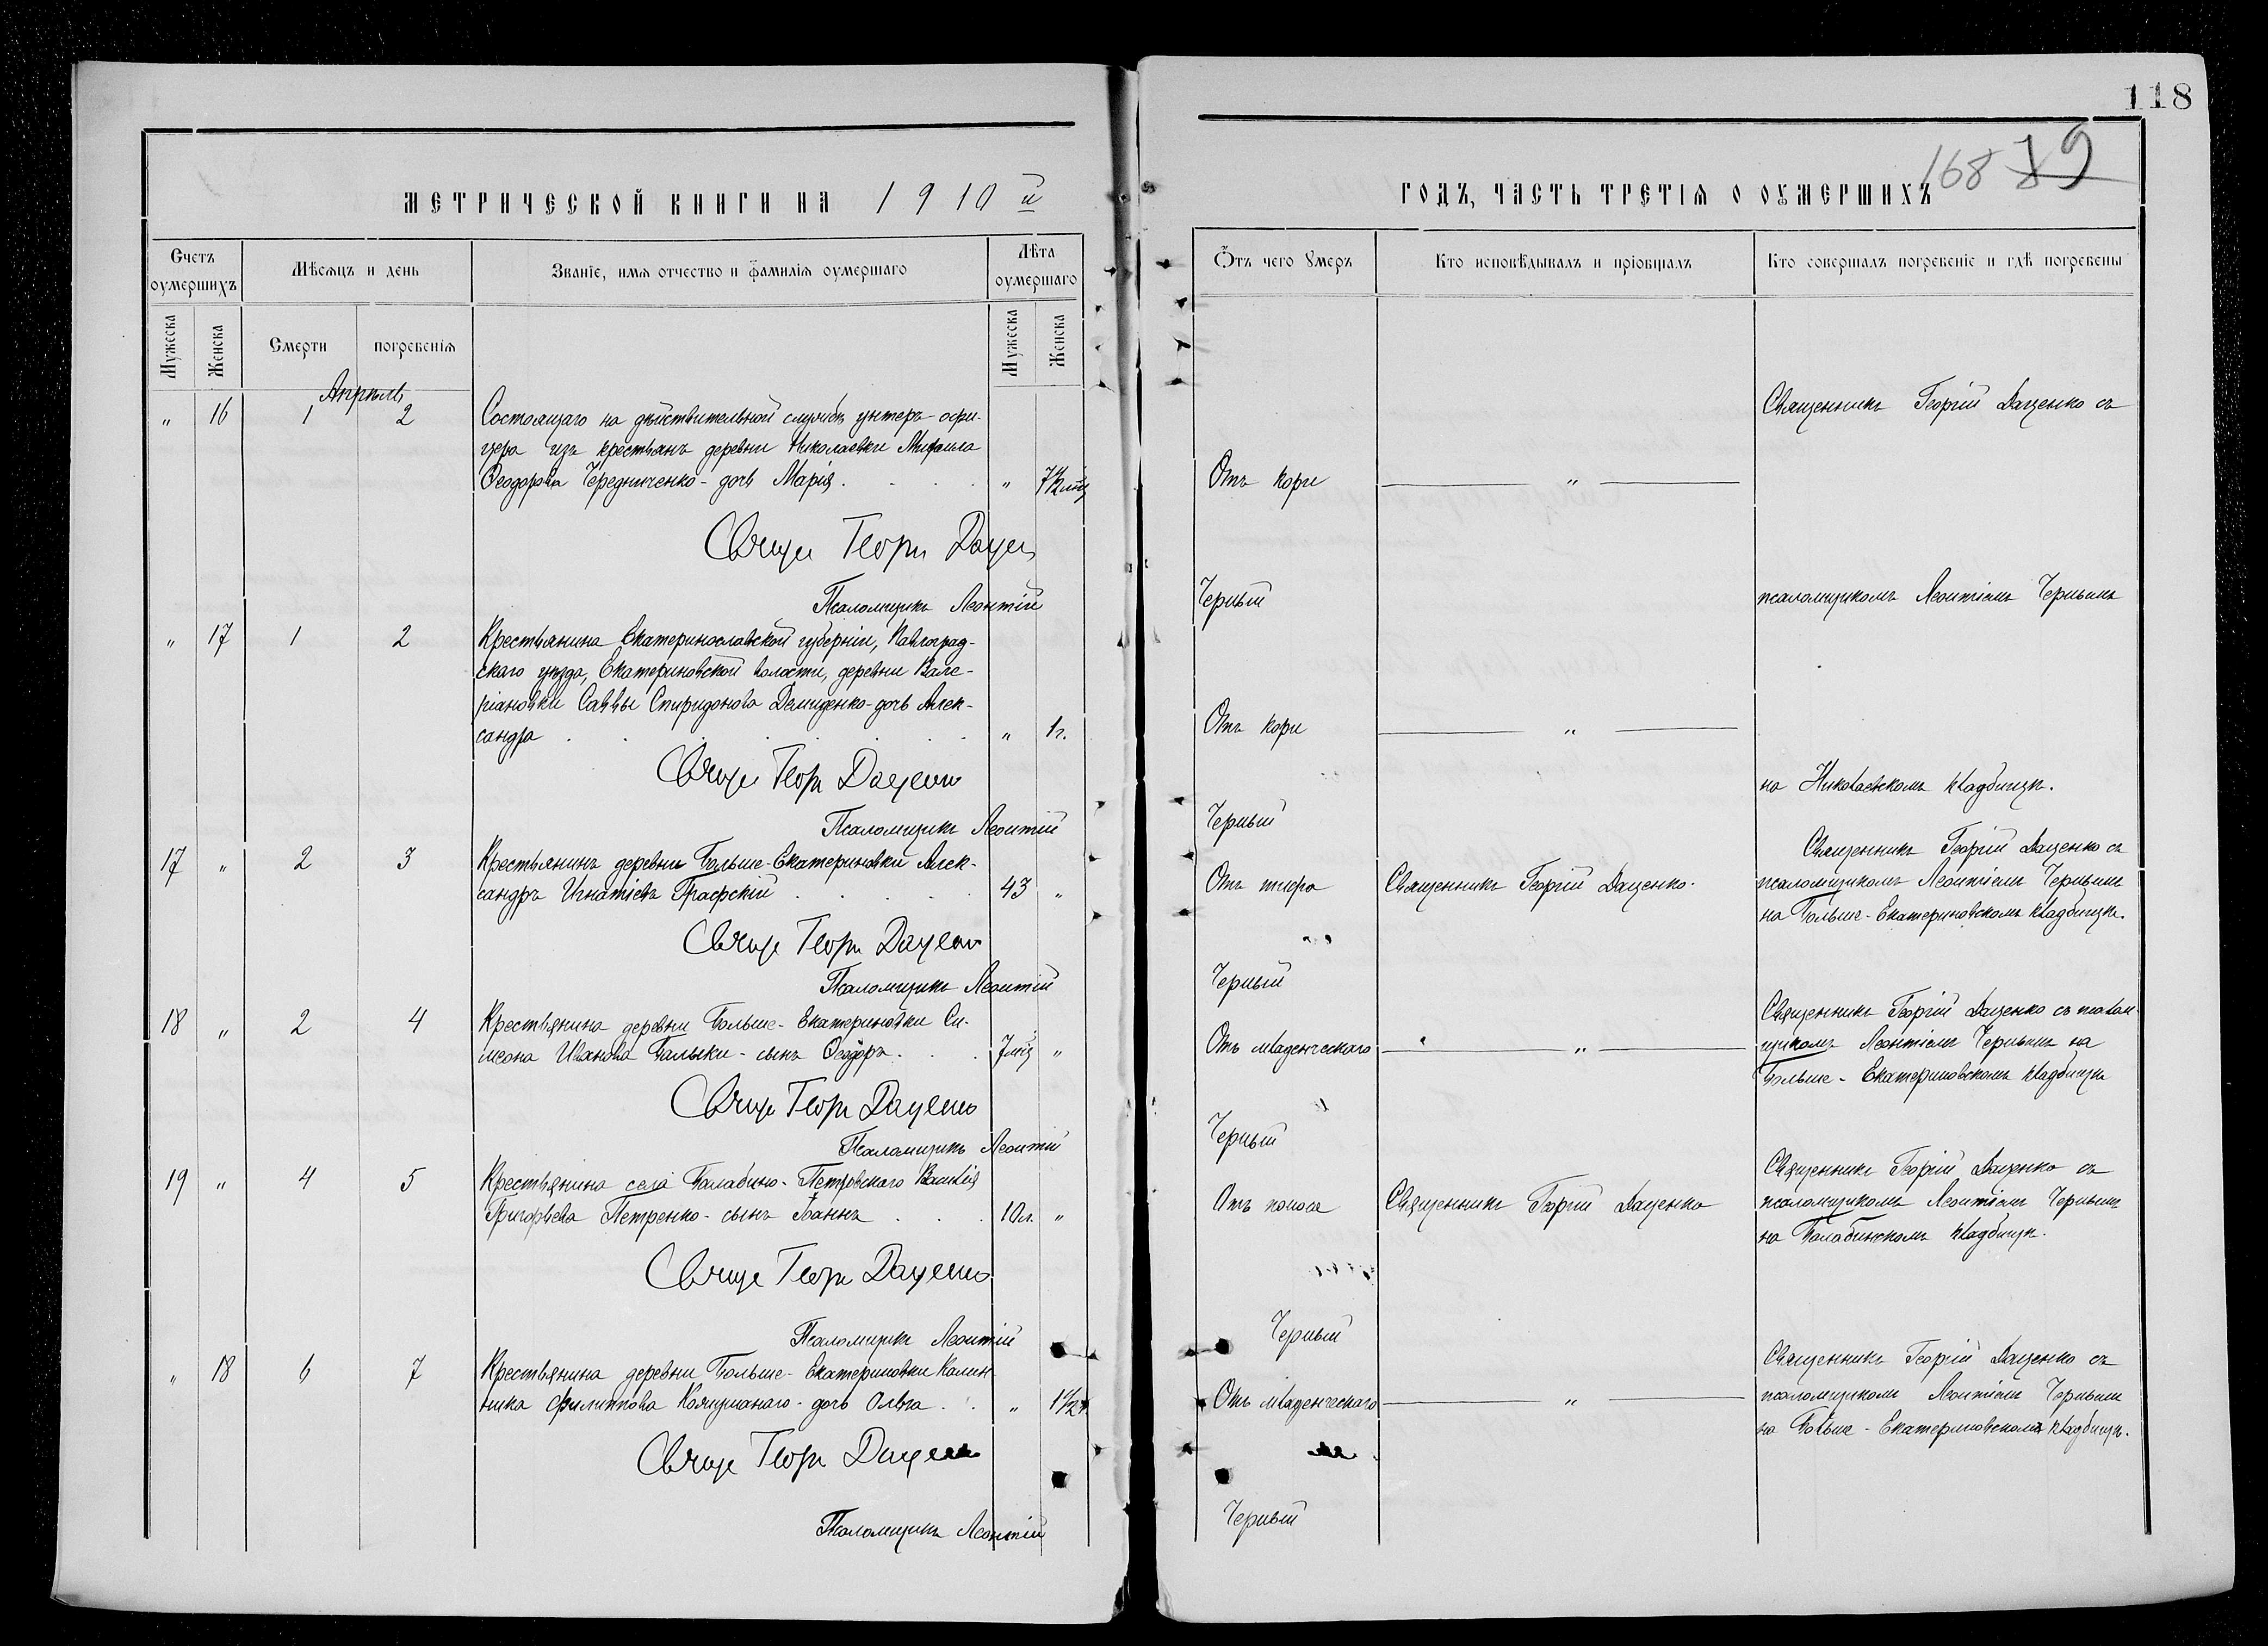 118
168 79
МЕТРИЧЕСКОЙ КНИГИ НА 1910й
ГОДЪ, ЧАСТЬ ТРЕТІЯ О ОУМЕРШИХЪ
Счетъ оумершихъ
Мѣсяцъ и день
Званіе, имя отчество и фамилія оумершаго
Лѣта оумершаго
Отъ чего умеръ
Кто исповѣдывалъ и пріобщалъ
Кто совершалъ погребеніе и гдѣ погребены
Мужеска
Женска
Смерти
погребенія
Мужеска
Женска
Апрѣль
" 16 1 2
Состоящаго на дѣйствительной службѣ унтеръ-офи-
цера изъ крестьянъ деревни Николаевки Михаила
Ѳеодорова Чередниченко - дочь Марія . . . . " 7½ мц
Отъ кори "
Священникъ Георгій Даценко съ
Свящ Георг Даце
Псаломщикъ Леонтій Черный
псаломщикомъ Леонтіемъ Чернымъ
" 17 1 2
Крестьянина Екатеринославской губерніи, Павлоград-
скаго уѣзда, Екатериновской волости, деревни Вале-
ріановки Саввы Спиридонова Демиденко - дочь Алек-
сандра . . . . . . . " 1 г.
Отъ кори "
Свящ Георг Даценко
на Николаевскомъ кладбищѣ.
Псаломщикъ Леонтій Черный
17 " 2 3
Крестьянинъ деревни Больше-Екатериновки Алек-
сандръ Игнатіевъ Графскій . . . . 43 "
Отъ тифа
Священникъ Георгій Даценко.
Священникъ Георгій Даценко съ
псаломщикомъ Леонтіемъ Чернымъ
на Больше-Екатериновскомъ кладбищѣ.
Свящ Георг Даценко
Псаломщикъ Леонтій Черный
18 " 2 4
Крестьянина деревни Больше-Екатериновки Си-
меона Иванова Балыки - сынъ Ѳеодоръ . . . 7 мц "
Отъ младенческаго "
Священникъ Георгій Даценко съ псалом-
щикомъ Леонтіемъ Чернымъ на
Больше-Екатериновскомъ кладбищѣ
Свящ Георг Даценко
Псаломщикъ Леонтій Черный
19 " 4 5
Крестьянина села Балабино-Петровскаго Василія
Григорьева Петренко - сынъ Іоаннъ . . . 10 л. "
Отъ поноса
Священникъ Георгій Даценко
Священникъ Георгій Даценко съ
псаломщикомъ Леонтіемъ Чернымъ
на Балабинскомъ кладбищѣ.
Свящ Георг Даценко
Псаломщикъ Леонтій Черный
" 18 6 7
Крестьянина деревни Больше-Екатериновки Калин-
ника Филиппова - дочь Ольга . . " 1½ г.
Отъ младенческаго "
Священникъ Георгій Даценко съ
псаломщикомъ Леонтіемъ Чернымъ
на Больше-Екатериновскомъ кладбищѣ.
Свящ Георг Даценко
Псаломщикъ Леонтій Черный